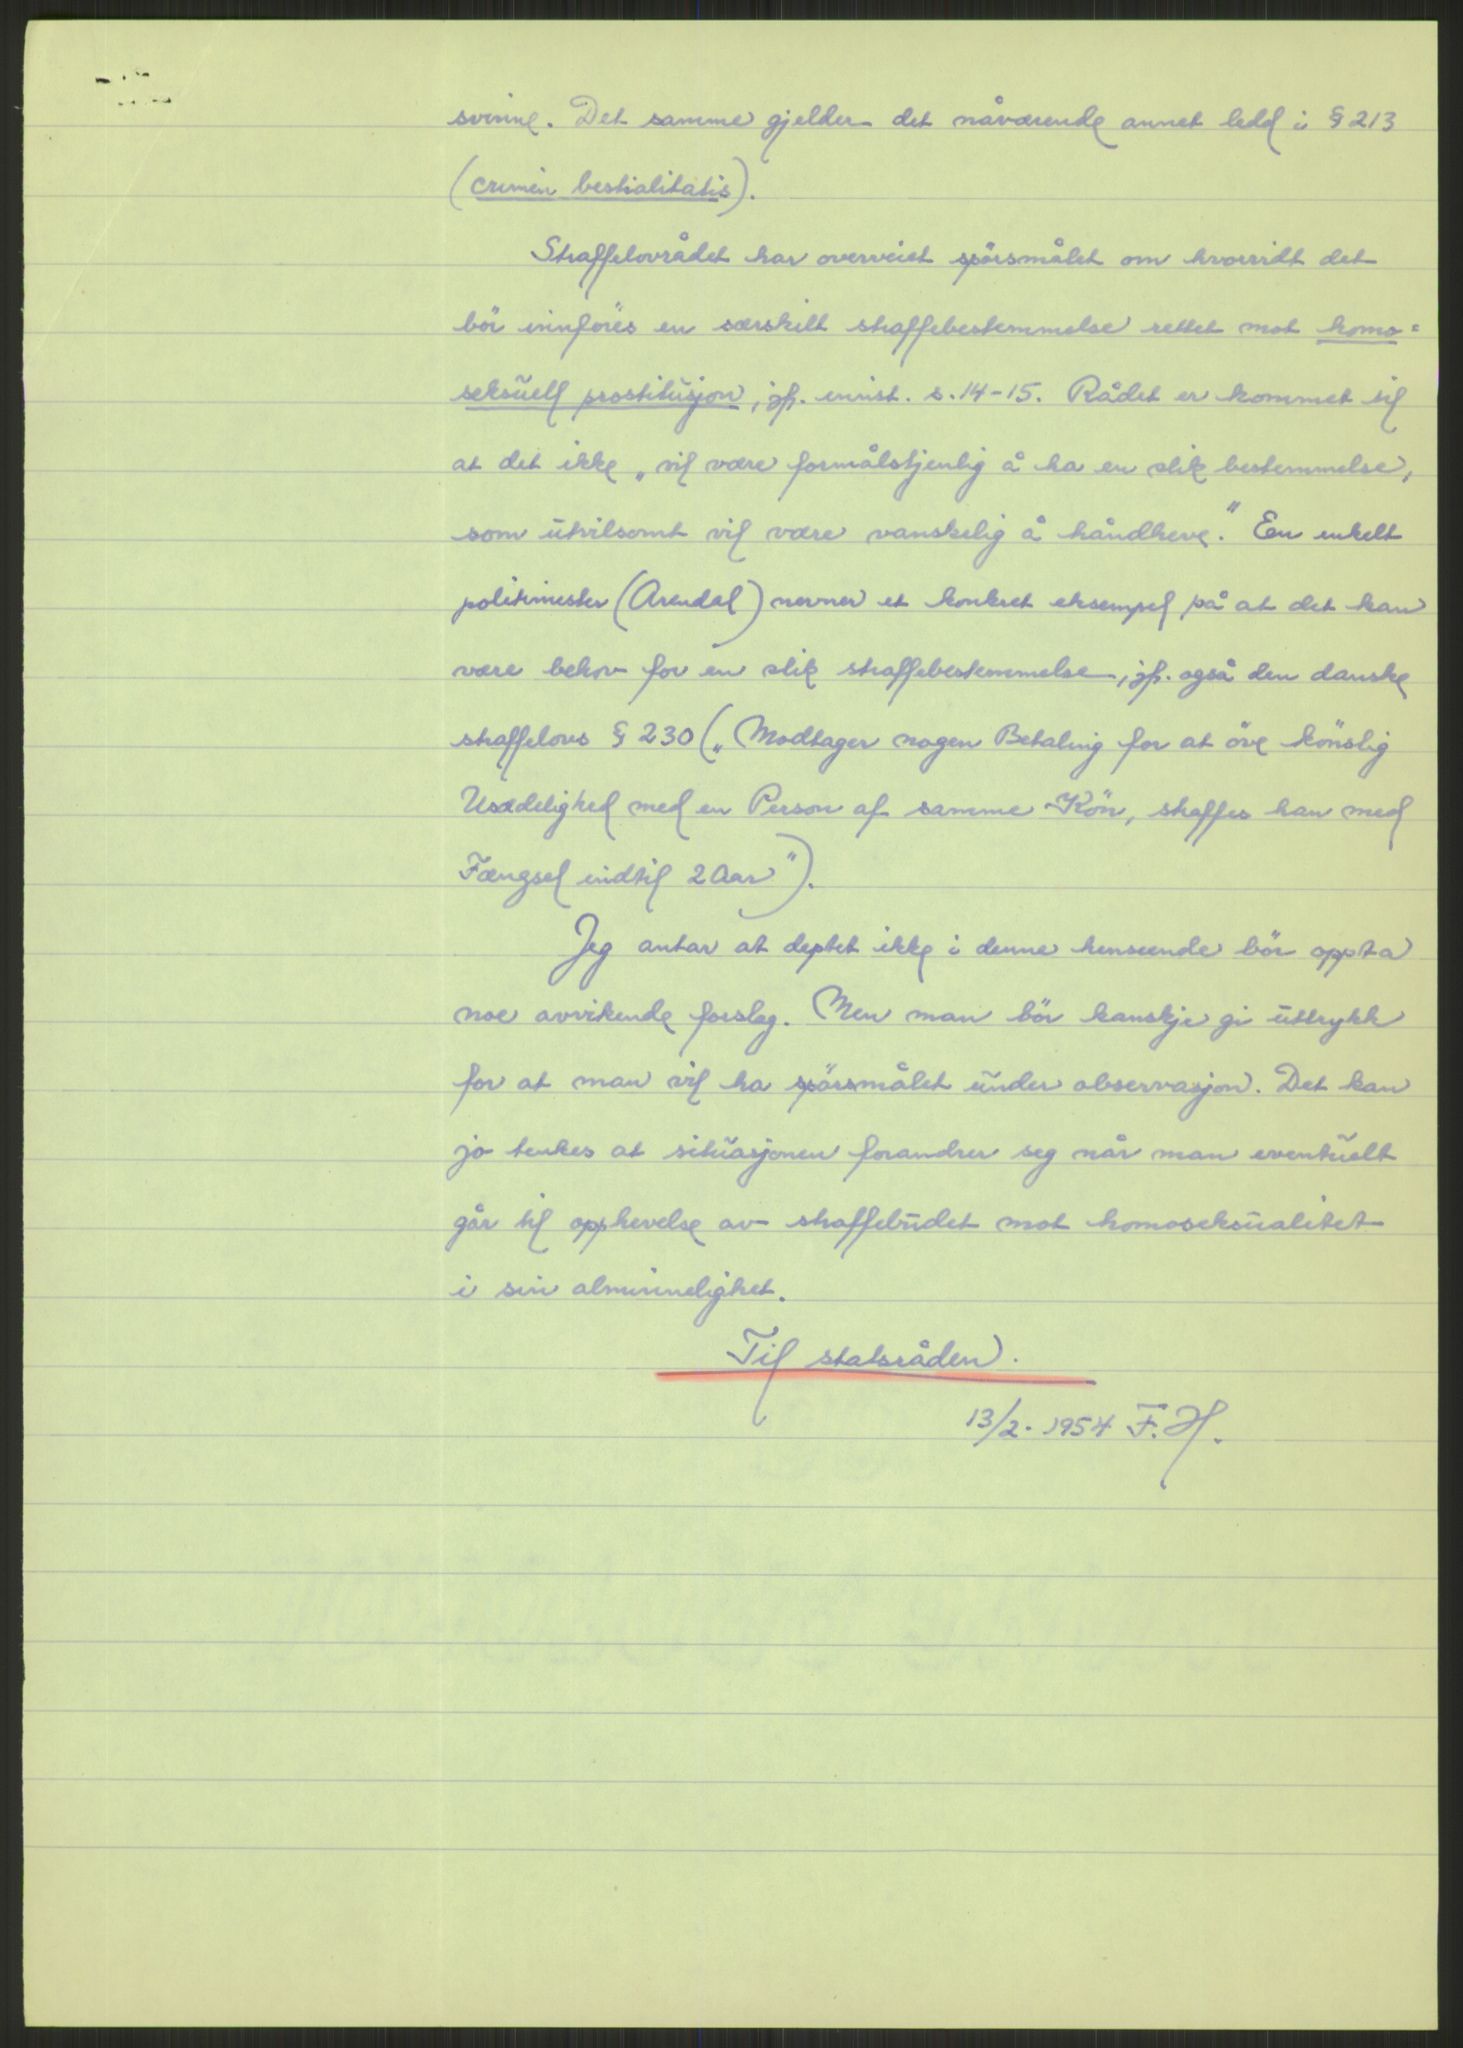 svinne. Det samme gjelder det nåværende annet ledd i § 213
(crimen bestialitatis).
Straffelovrådet har overveiet spörsmålet om hvorvidt det
bör innföres en særskilt straffebestemmelse rettet mot homo=
seksuell prostitusjon, jfr. innst. s. 14-15. Rådet er kommet til
at det ikke „vil være formålstjenlig å ha en slik bestemmelse,
som utvilsomt vil være vanskelig å håndheve." En enkelt
politimester (Arendal) nevner et konkret eksempel på at det kan
være behov for en slik straffebestemmelse, jfr. også den danske
straffelovs § 230 („Modtager nogen Betaling for at öve könslig
Usædelighed med en Person af samme Kön, straffes han med
Fængsel indtil 2 Aar").
Jeg antar at deptet ikke i denne henseende bör oppta
noe avvikende forslag. Men man bör kanskje gi uttrykk
for at man vil ha spörsmålet under observasjon. Det kan
jo tenkes at situasjonen forandrer seg når man eventuelt
går til opphevelse av straffebudet mot homoseksualitet
i sin alminnelighet.
Til statsråden.
13/2. 1954 F.H.